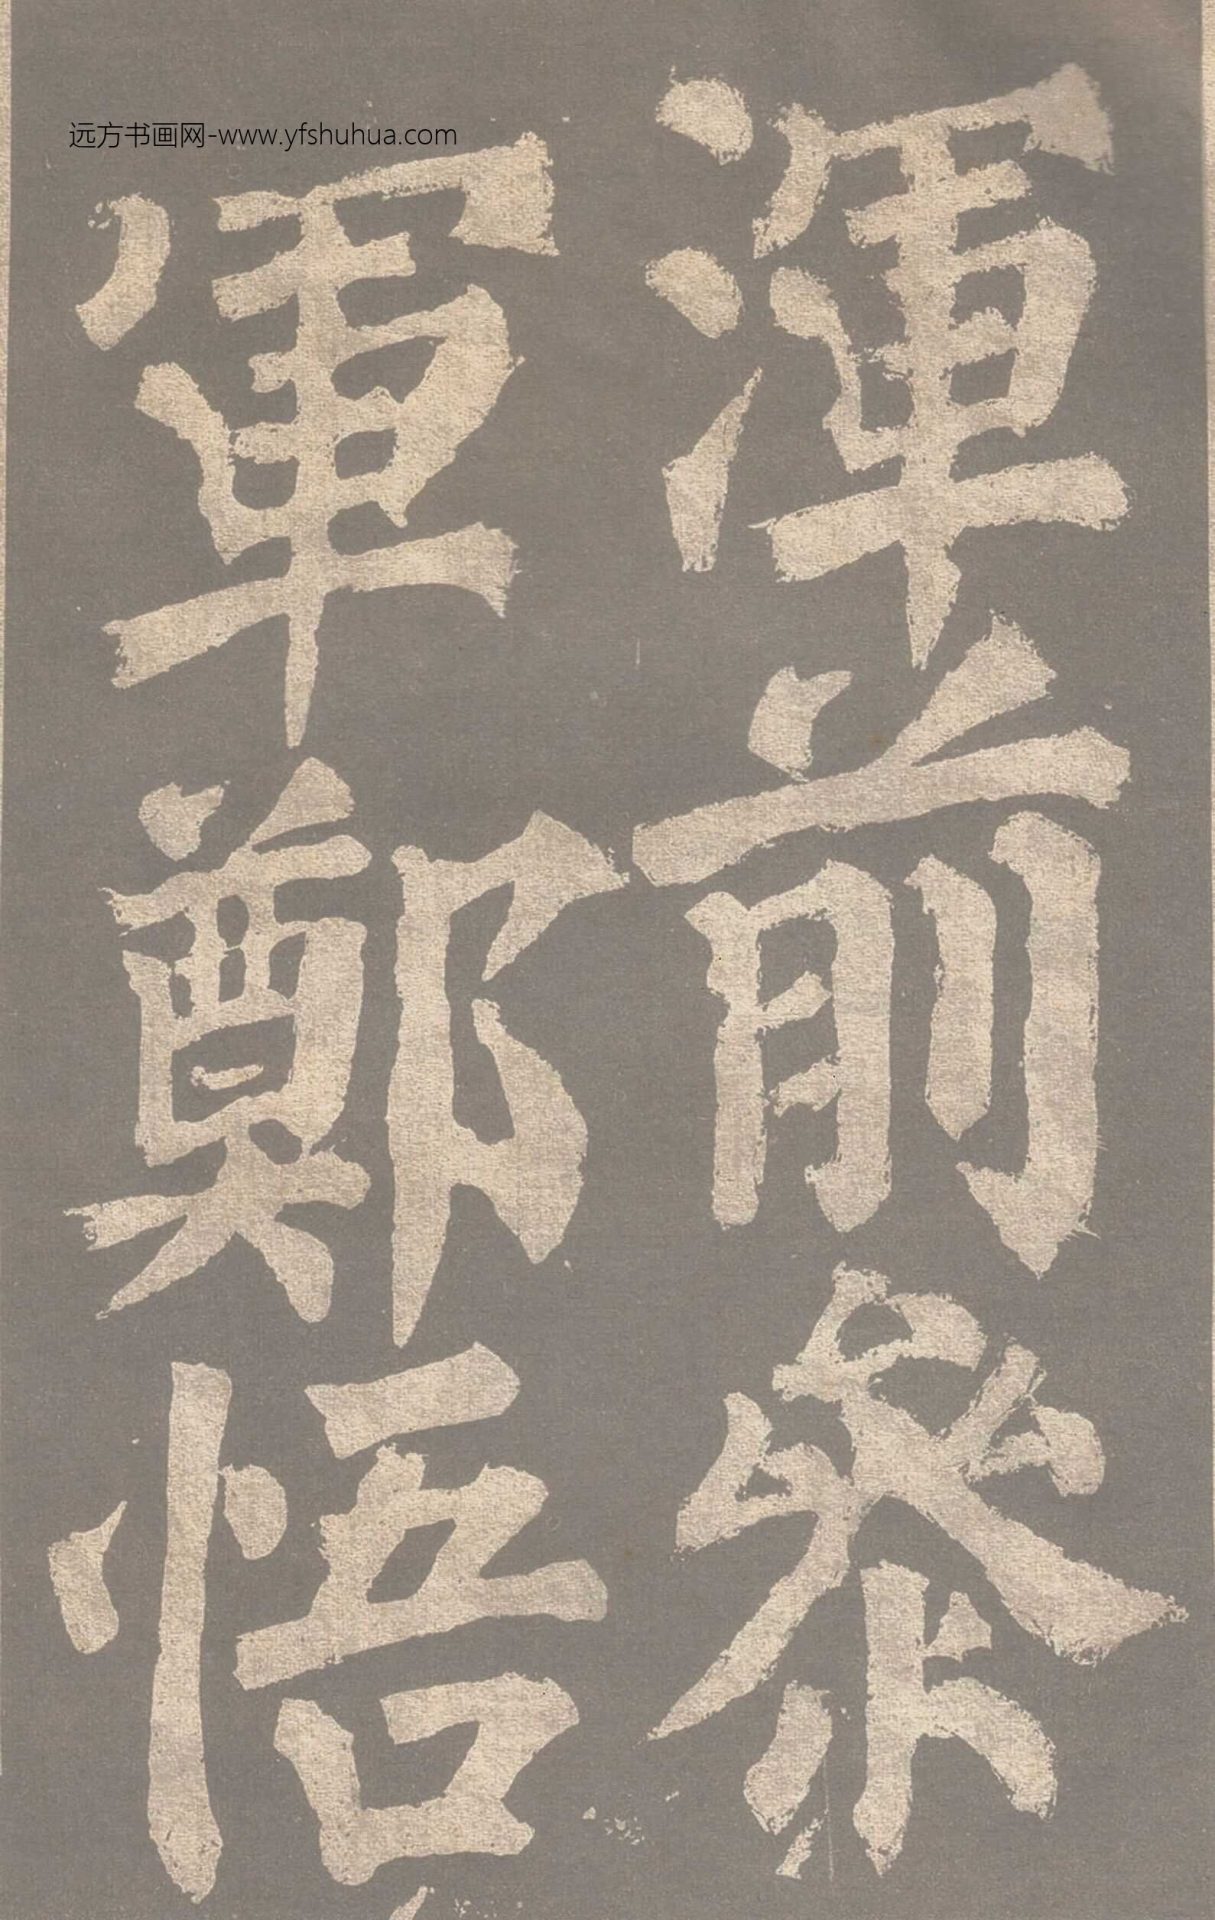 远方书画网-www.yfshuhua.com
渾前參
軍鄭悟